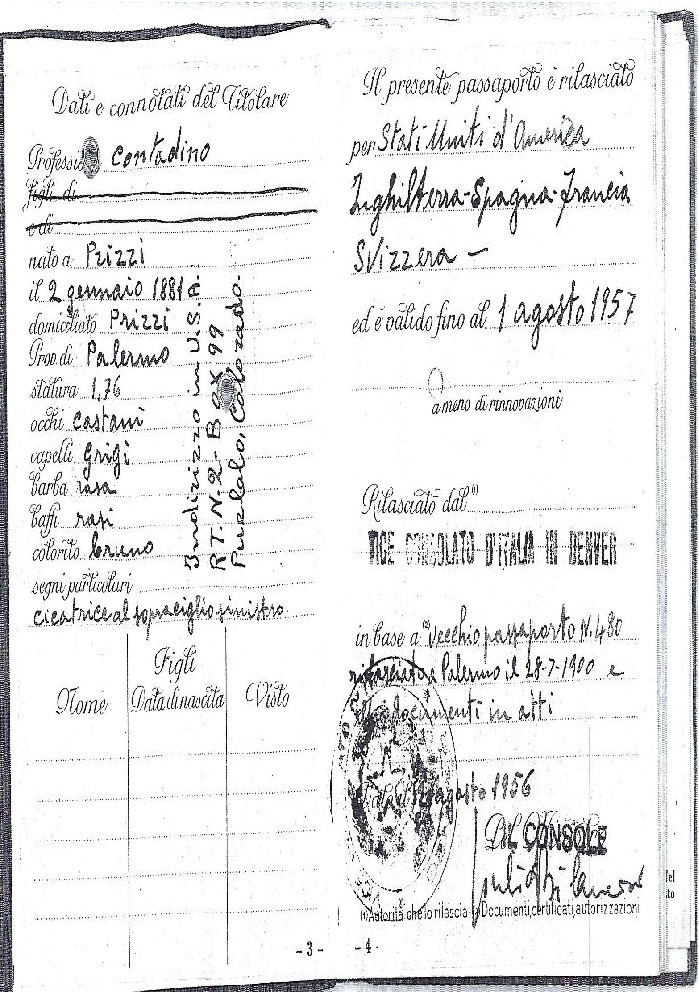 Dati e connotati del Titolare
Professione contadino
figli di
e di
nato a Prizzi
il 2 gennaio 1881
domiciliato Prizzi
Prov. di Palermo
statura 1,76
occhi castani
capelli grigi
barba rasa
baffi rasi
colorito bruno
segni particolari
cicatrice al sopraciglio sinistro
Indirizzo in U.S.A.
RT. N. 2 - Box 99
Pueblo, Colorado.
Figli
Nome Data di nascita Visto
- 3 -
Il presente passaporto è rilasciato
per Stati Uniti d'America
Inghilterra - Spagna - Francia
Svizzera —
ed è valido fino al 1 agosto 1957
a meno di rinnovazioni
Rilasciato dal (1)
VICE CONSOLATO D'ITALIA IN DENVER
in base a (2) Vecchio passaporto N. 480
rilasciato a Palermo il 28-7-1900 e
documenti in atti
agosto 1956
IL CONSOLE
(1) Autorità che lo rilascia - (2) Documenti, certificati, autorizzazioni
- 4 -